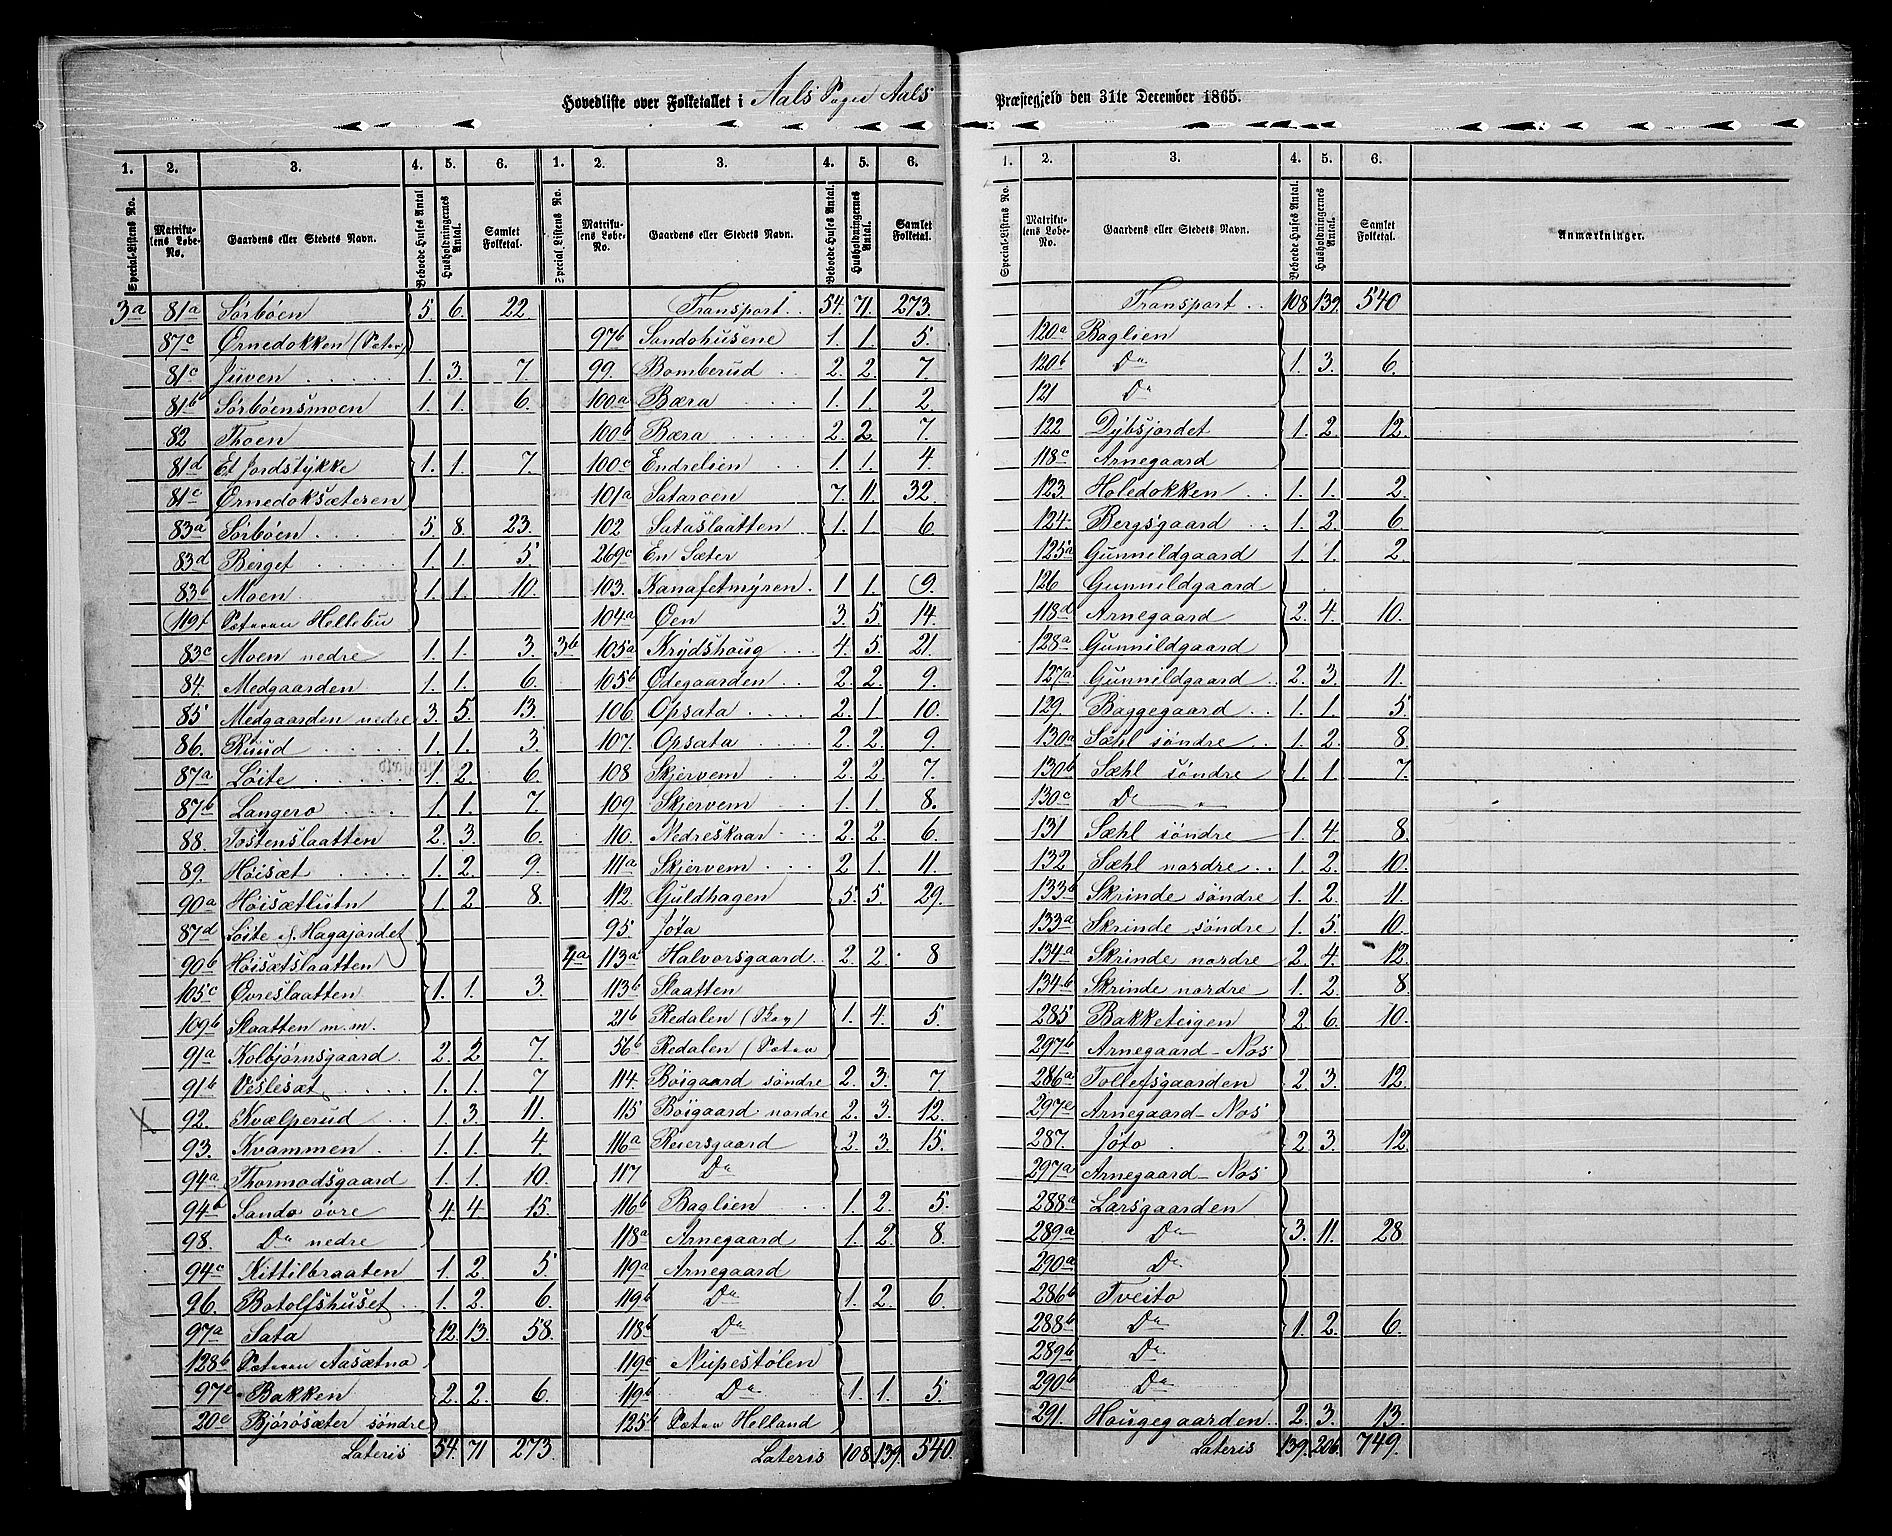 Hovedliste over Folketallet i Aals Sogn Aals Præstegjeld den 31te December 1865.
1. 2. 3. 4. 5. 6. 1. 2. 3. 4. 5. 6.
Special-Listens No. Matrikulens Løbe-No. Gaardens eller Stedets Navn. Beboede Huses Antal Husholdningernes Antal. Samlet Folketal. Special Listens No. Matrikulens Løbe-No. Gaardens eller Stedets Navn. Beboede Huses Antal. Husholdningernes Antal. Samlet Folketal.
3a 81a Sørbøen 5. 6. 22
87c Ørnedokken (Sæter)
81c Juven 1. 3. 7.
81b Sørbøensmoen 1. 1. 6.
82 Thoen
81d Et Jordstykke 1. 1. 7.
81c Ørnedoksæteren
83a Sørbøen 5. 8. 23.
83d Berget 1. 1. 5
83b Moen 1. 1. 10.
119f Sæteren Hellebu
83c Moen nedre 1. 1. 3.
84. Medgaarden 1. 1. 6.
85 Medgaarden nedre 3. 5. 13.
86. Ruud 1. 1. 3.
87a Løite 1. 2. 6.
87b Langero 1. 1. 7.
88. Tostenslaatten 2. 3. 6.
89. Høisæt 1. 2. 9.
90a Høisætlutn 1. 2 8.
87d Løite d. Hagajordet
90b Høisætslaatten
105c Øvreslaatten 1. 1. 3.
109b Slaatten m.m.
91a Kolbjørnsgaard 2. 2 7.
91b Veslesæt 1. 1. 7
92. Kvælperud 1. 3. 11.
93. Kvammen 1. 1. 4
94a Thormodsgaard 1. 1. 10.
94b Sando øvre 4. 4. 15.
98. Do nedre
94c Kittilbraaten 1. 2. 5.
96. Botolfshuset 1. 2. 6.
97a Sata 12. 13. 58.
128b Sæteren Aasætna
97c Bakken 2. 2. 6.
20c Bjørøsæter søndre
Lateris 54. 71 273.
Transport 54. 71. 273.
97b Sandohusene 1. 1. 5.
99. Bomberud 2. 2. 7.
100a Bæra 1. 1. 2.
100b Bæra 2. 2 7.
100c Endrelien 1. 1. 4.
101a Sataroen 7. 11. 32.
102 Sataslaatten 1. 1. 6.
269c En Sæter
103. Kanafetmyren 1 1. 9.
104a Øen 3. 5. 14.
3b 105a Krydshoug 4. 5. 21.
105b Ødegaarden 2. 2. 9.
106. Opsata 2. 1. 10.
107. Opsata 2. 2. 9.
108 Skjervem 2. 2. 7.
109. Skjervem 1. 1. 8.
110. Nedreskaar 2. 2. 6.
111a Skjervem 2 1. 11.
112. Guldhagen 5. 5. 29.
95. Jøta
4a 113a Halvorsgaard 2. 2. 8
113b Slaatten
21b Redalen (Skov) 1. 4. 5.
56b Redalen (Sæter
114. Bøigaard søndre 2. 3. 7
115 Bøigaard nordre 2. 3. 12.
116a Reiersgaard 2. 3. 15.
117 Do
116b Baglien 1. 2. 5.
118a Arnegaard 1. 2. 8.
119a Arnegaard
119b Do 1. 2. 6.
118b Do
119c Nupestølen
119b Do 1. 1. 5
125b Sæteren Helland
Lateris 108. 139. 540.
1. 2. 3. 4. 5. 6.
Special-Listens No. Matrikulens Løbe-No. Gaardens eller Stedets Navn. Beboede Huses Antal. Husholdningernes Antal. Samlet Folketal. Anmærkninger.
Transport 108 139. 540
120a Baglien
120b Do 1. 3. 6.
121 Do
122 Dybsjordet 1. 2. 12.
118c Arnegaard
123. Holedokken 1. 1. 2.
124. Bergsgaard 1. 2. 6.
125a Gunnildgaard 1. 1. 2
126 Gunnildgaard
118d Arnegaard 2. 4. 10.
128a Gunnildgaard
127a Gunnildgaard 2. 3. 11.
129. Baggegaard 1. 1. 5.
130a Sæhl søndre 1. 2. 8
130b Sæhl søndre 1. 1. 7.
130c Do "
131 Sæhl søndre 1. 4. 8
132 Sæhl nordre 1. 2. 10.
133b Skrinde søndre 1. 2. 11.
133a Skrinde søndre 1. 5. 10.
134a Skrinde nordre 2. 4. 12
134b Skrinde nordre 1. 2. 8
285 Bakketeigen 2 6. 10.
297b Arnegaard-Nos
286a Tollefsgaarden 2 3. 12.
297e Arnegaard-Nos
287. Jøto 2 3. 12
297a Arnegaard-Nos
288a Larsgaarden
289a Do 3. 11. 28
290a Do
286b Tveito
288b Do 1. 2. 6.
289b Do
290b Do
291. Hougegaarden 2. 3. 13.
Lateris 139. 206. 749.